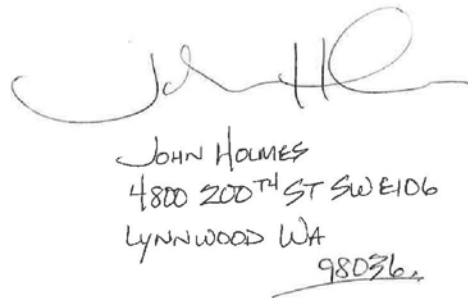 John H
JOHN HOLMES
4800 200TH ST SW E106
LYNNWOOD WA
98036.